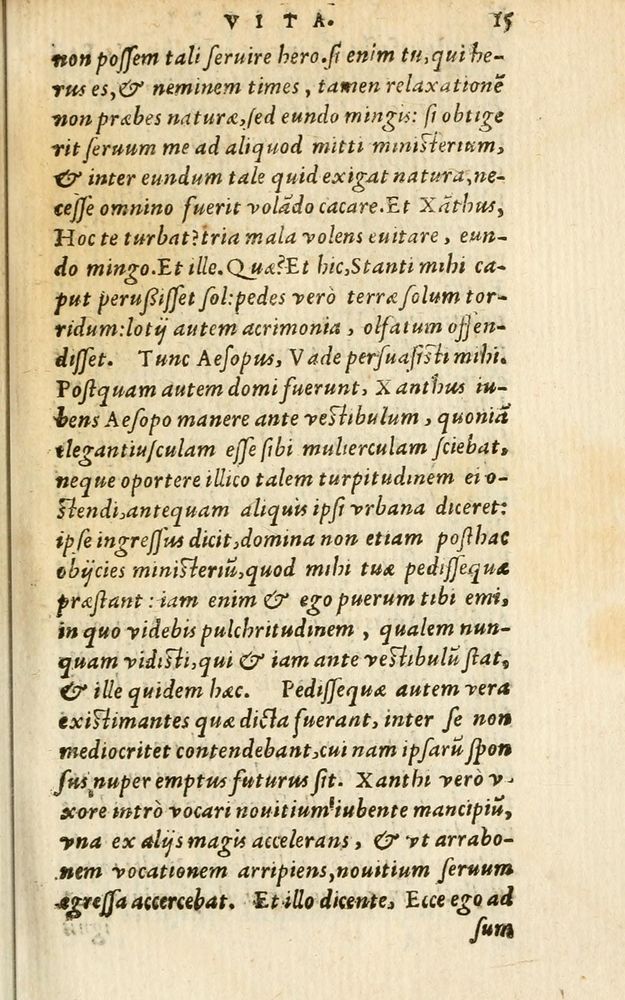 VITA. 15
non poſſem tali ſeruire hero.ſi enim tu, qui he-
rus es, & neminem times, tamen relaxationẽ
non præbes naturæ, ſed eundo mingis: ſi obtige
rit ſeruum me ad aliquod mitti miniſterium,
& inter eundum tale quid exigat natura, ne-
ceſſe omnino fuerit volãdo cacare. Et Xãthus,
Hoc te turbat? tria mala volens euitare, eun-
do mingo. Et ille. Quæ? Et hic, Stanti mihi ca-
put peruſsiſſet ſol: pedes verò terræ ſolum tor-
ridum: lotij autem acrimonia, olfatum offen-
diſſet. Tunc Aeſopus, Vade perſuaſiſti mihi.
Poſtquam autem domi fuerunt, Xanthus iu-
bens Aeſopo manere ante veſtibulum, quoniã
elegantiuſculam eſſe ſibi mulierculam ſciebat,
neque oportere illico talem turpitudinem ei o-
ſtendi, antequam aliquis ipſi vrbana diceret:
ipſe ingreſſus dicit, domina non etiam poſthac
obijcies miniſteriũ, quod mihi tuæ pediſſequæ
præſtant: iam enim & ego puerum tibi emi,
in quo videbis pulchritudinem, qualem nun-
quam vidiſti, qui & iam ante veſtibulũ ſtat,
& ille quidem hæc. Pediſſequæ autem vera
exiſtimantes quæ dicta fuerant, inter ſe non
mediocritet contendebant, cui nam ipſarũ ſpon
ſus nuper emptus futurus ſit. Xanthi verò v-
xore intrò vocari nouitium iubente mancipiũ,
vna ex alijs magis accelerans, & vt arrabo-
nem vocationem arripiens, nouitium ſeruum
egreſſa accercebat. Et illo dicente, Ecce ego ad
ſum